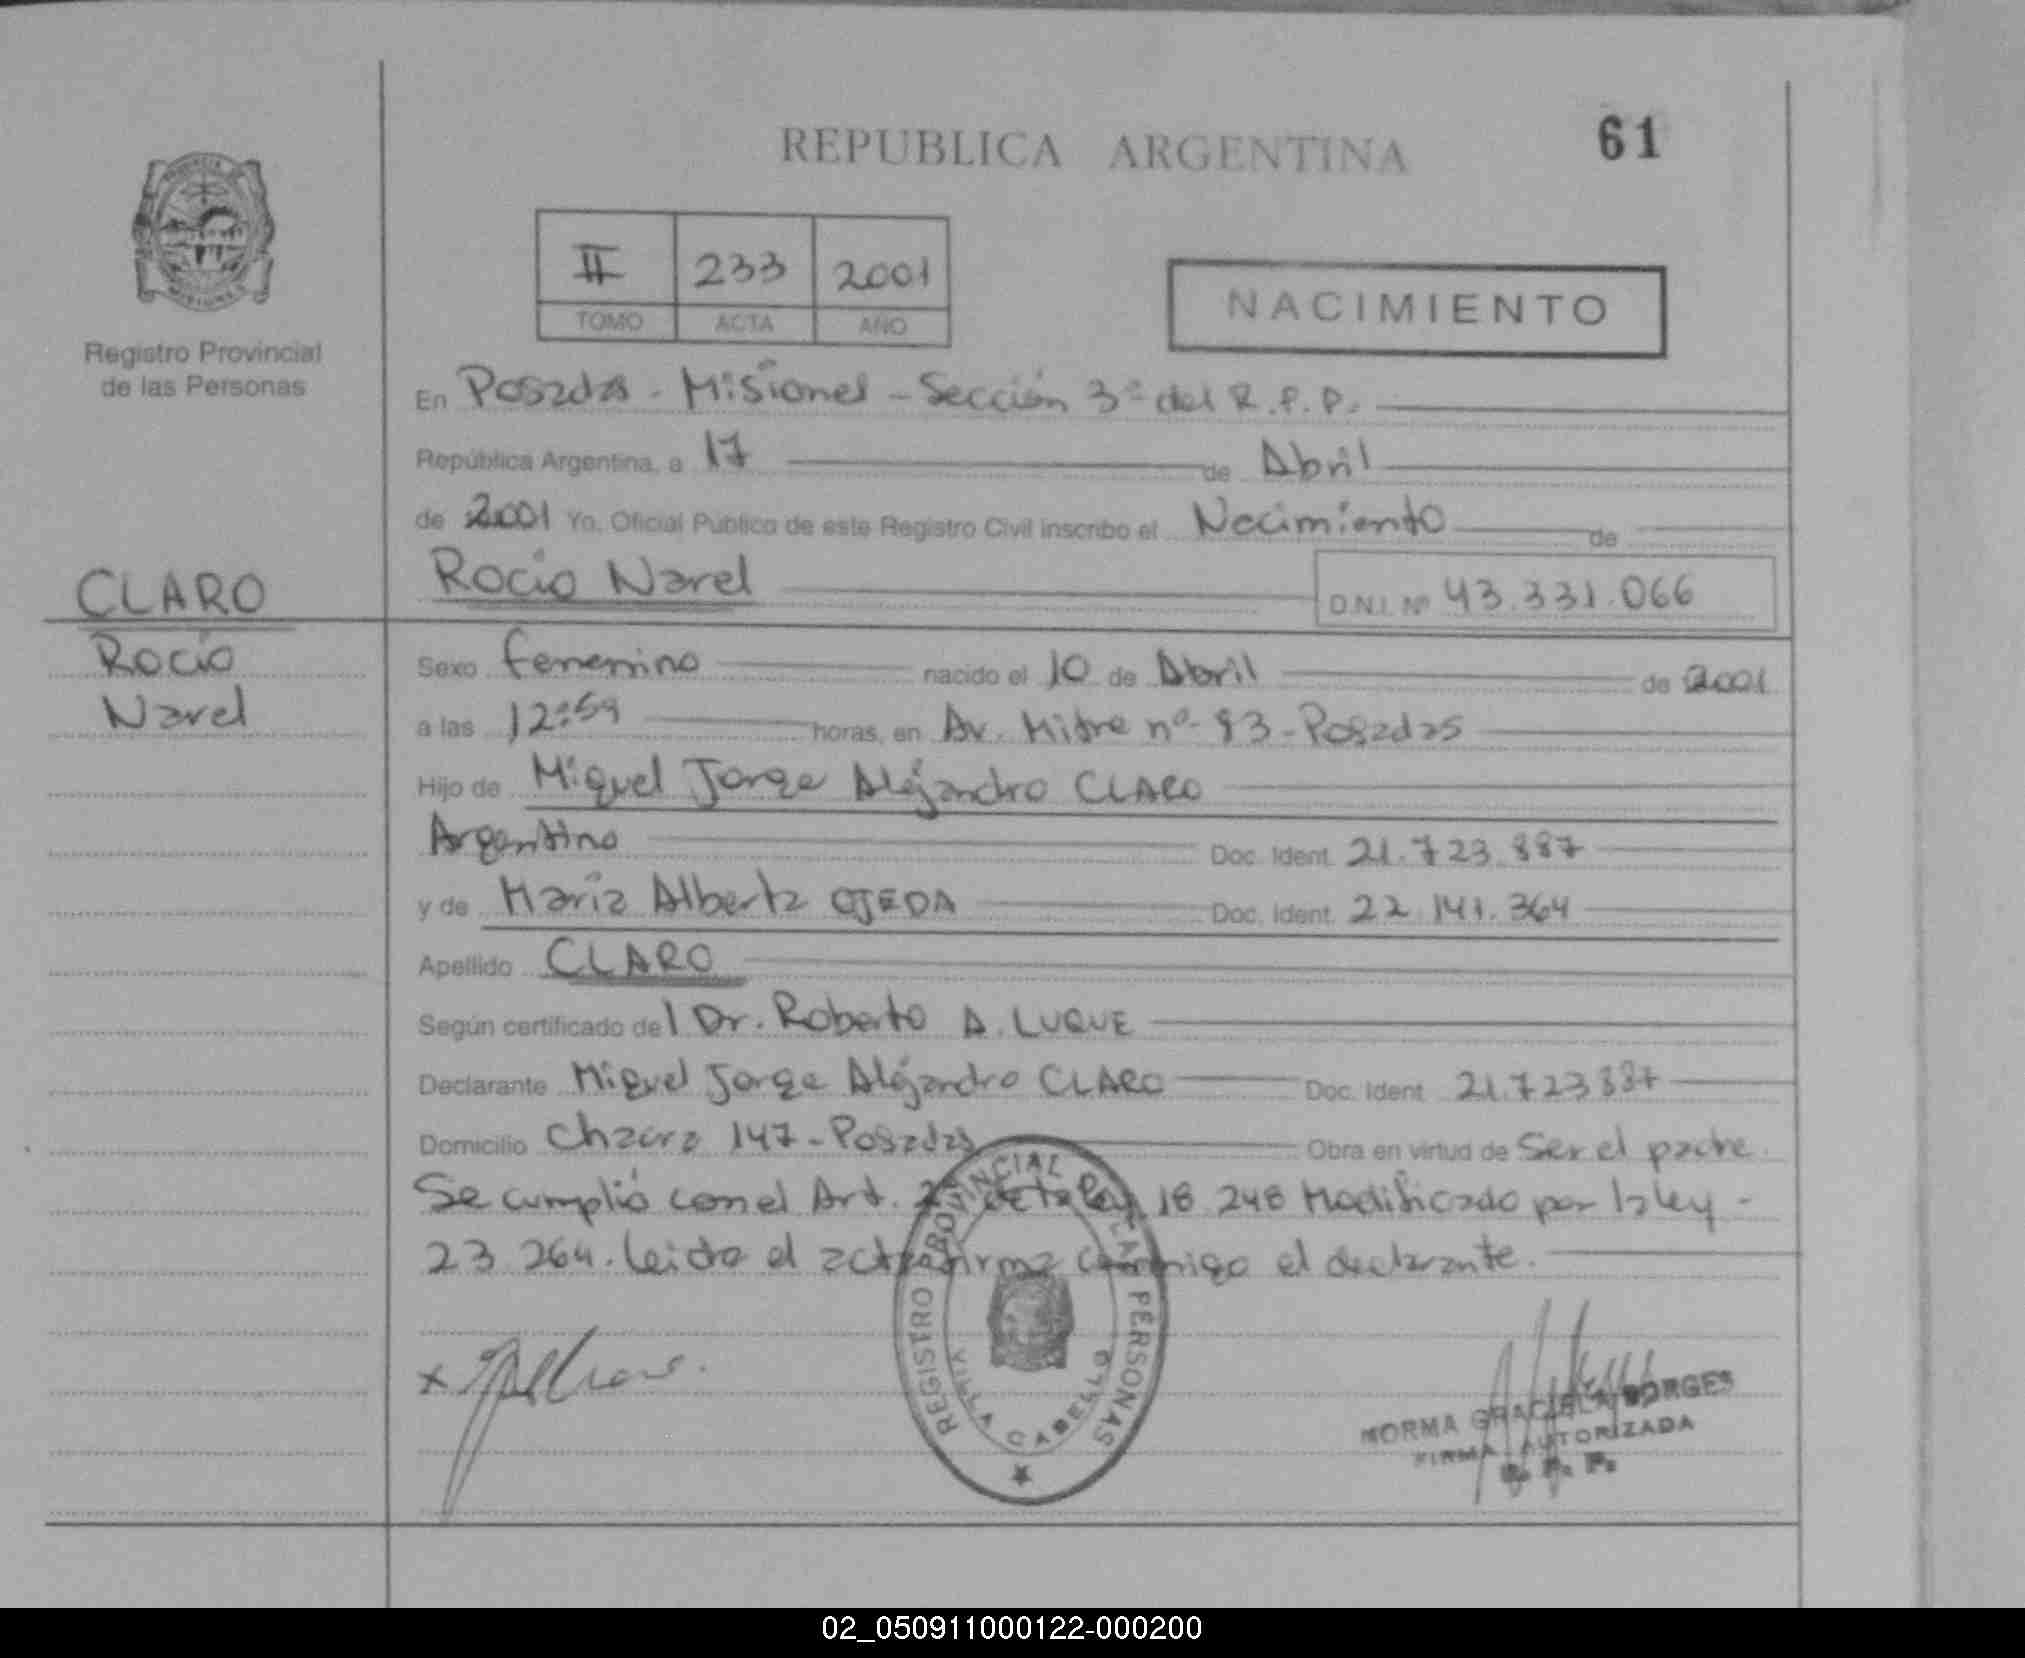 REPUBLICA ARGENTINA
61
II 233 2001
TOMO ACTA AÑO
NACIMIENTO
Registro Provincial
de las Personas
En Posadas - Misiones - Sección 3ª del R.P.P.
República Argentina, a 17 de Abril
de 2001 Yo, Oficial Público de este Registro Civil inscribo el Nacimiento de
Rocio Narel D.N.I. Nº 43.331.066
CLARO
Rocio
Narel
Sexo femenino nacido el 10 de Abril de 2001
a las 12:59 horas, en Av. Mitre nº 93 - Posadas
Hijo de Miguel Jorge Alejandro CLARO
Argentino Doc. Ident. 21.723.887
y de Maria Alberta OJEDA Doc. Ident. 22.141.364
Apellido CLARO
Según certificado del Dr. Roberto A. LUQUE
Declarante Miguel Jorge Alejandro CLARO Doc. Ident. 21.723887
Domicilio Chacra 147 - Posadas Obra en virtud de Ser el padre.
Se cumplió con el Art. de la Ley 18.248 Modificado por la ley -
23.264. Leida el acta firma conmigo el declarante.
REGISTRO PROVINCIAL DE LAS PERSONAS
VILLA CABELLO
NORMA GRACIELA BORGES
FIRMA AUTORIZADA
R. P. P.
02_050911000122-000200